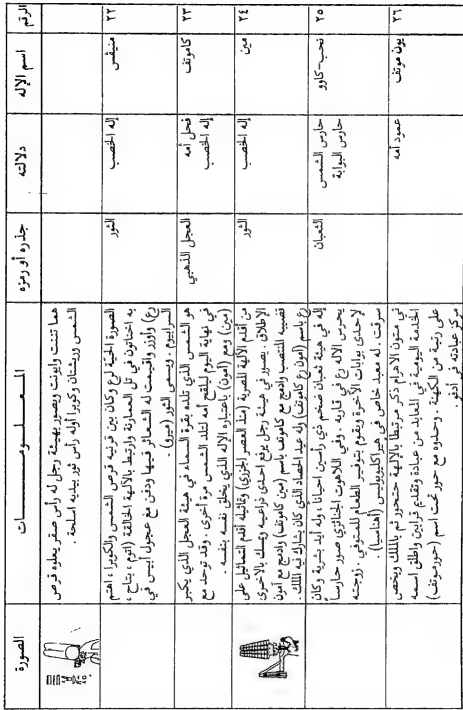 الرقم
اسم الإله
دلالته
جذره أو رمزه
المعلومات
الصورة
هما تننت وايونت ويصور بهيئة رجل له رأس صقر يعلوه قرص
الشمس وريشتان وكوبرا أو له رأس ثور بيديه اسلحة.
٢٢
منيفس
إله الخصب
الثور
الصورة الحية لرع وكان بين قرنيه قرص الشمس والكوبرا، اهتم
به اخناتون في تل العمارنة وارتبط بالآلهة الخالقة (اتوم، بتاح،
رع) وأوزر وأقيمت له الشعائر فيها ودفن مع عجول أبيس في
السرابيوم. ويسمى الثور (ميرو).
٢٣
كاموتف
فحل أمه
إله الخصب
العجل الذهبي
هو الشمس الذي تلده بقرة السماء في هيئة العجل الذي يكبر
في نهاية اليوم ليلقح أمه لتلد الشمس مرة أخرى. وقد توحد مع
(مين) ومع (آمون) باعتباره الإله الذي يخلق نفسه بنفسه.
٢٤
مين
إله الخصب
الثور
من أقدم الآلهة المصرية (منذ العصر الحجري) وتماثيله أقدم التماثيل على
الإطلاق. يصور في هيئة رجل يرفع احدى ذراعيه ويمسك بالأخرى
قضيبه المنتصب واندمج مع كاموتف باسم (مين كاموتف) واندمج مع آمون
رع باسم (آمون رع كاموتف) وله عيد الحصاد الذي كان يشارك فيه الملك.
٢٥
نحب-كاوو
حارس الشمس
حارس البوابة
الثعبان
إله في هيئة ثعبان ضخم ذي رأسين احيانا، وله أيد بشرية وكان
يحرس الإله رع في قاربه. وفي اللاهوت الجنائزي صور حارساً
لإحدى بوابات الآخرة ويقوم بتوفير الطعام للمتوفى. زوجته
سرقت، له معبد خاص في هيراكليوبوليس (أهناسيا).
٢٦
يون موتف
عمود أمه
في متون الأهرام ذكر مرتبطا بالإلهة حتحور ثم بالملك ويخص
الخدمة اليومية في المعابد من عبادة وتقديم قرابين وأطلق اسمه
على رتبة من الكهنة. وحدوه مع حور تحت اسم (حورموتف)
مركز عبادته في أدفو.